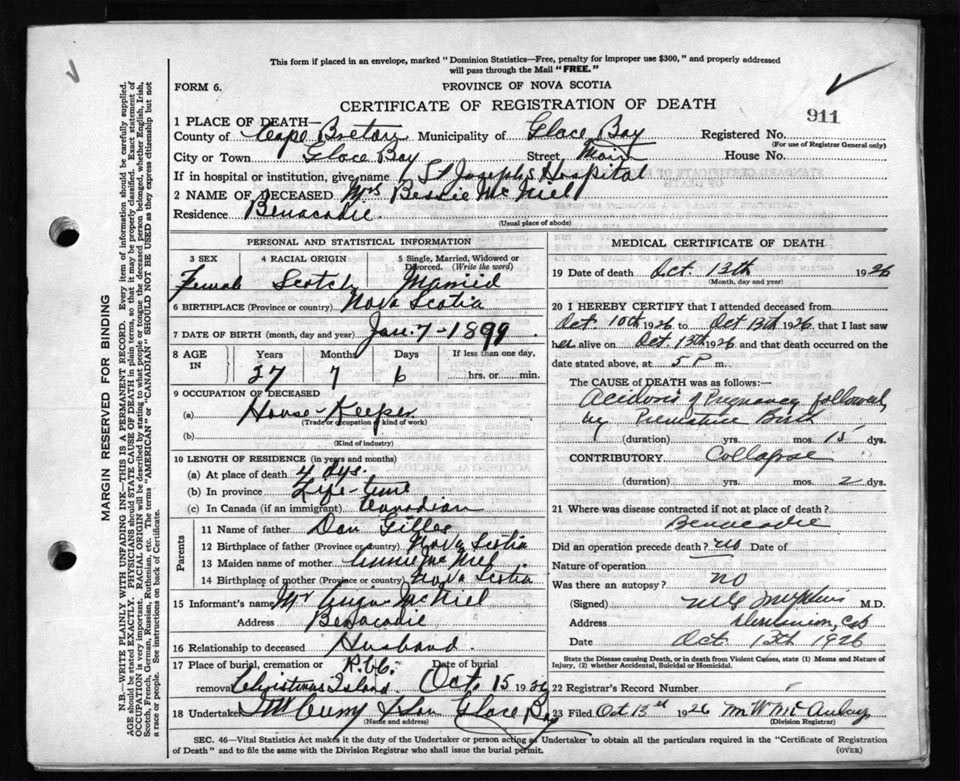 This form if placed in an envelope, marked "Dominion Statistics—Free, penalty for improper use $300," and properly addressed
will pass through the Mail "FREE."
FORM 6.
PROVINCE OF NOVA SCOTIA
CERTIFICATE OF REGISTRATION OF DEATH
911
1 PLACE OF DEATH—
County of Cape Breton Municipality of Glace Bay Registered No.
(For use of Registrar General only)
City or Town Glace Bay Street Main House No.
If in hospital or institution, give name St Josephs Hospital
2 NAME OF DECEASED Mrs Bessie McNiel
Residence Benacadie.
(Usual place of abode)
PERSONAL AND STATISTICAL INFORMATION
3 SEX 4 RACIAL ORIGIN 5 Single, Married, Widowed or
Divorced. (Write the word)
Female Scotch Married
6 BIRTHPLACE (Province or country) Nova Scotia
7 DATE OF BIRTH (month, day and year) Jan. 7 - 1899
8 AGE IN Years Months Days If less than one day,
27 7 6 hrs. or min.
9 OCCUPATION OF DECEASED
(a) House-Keeper
(Trade or occupation or kind of work)
(b)
(Kind of industry)
10 LENGTH OF RESIDENCE (in years and months)
(a) At place of death 4 dys.
(b) In province Life-time
(c) In Canada (if an immigrant) Canadian
Parents
11 Name of father Dan Gilles
12 Birthplace of father (Province or country) Nova Scotia
13 Maiden name of mother Annie McNiel
14 Birthplace of mother (Province or country) Nova Scotia
15 Informant's name Mr McNiel
Address Benacadie
16 Relationship to deceased Husband.
17 Place of burial, cremation or R.C.C. Date of burial
removal Christmas Island. Oct. 15 1926
18 Undertaker Curry & Son Glace Bay
(Name and address)
MEDICAL CERTIFICATE OF DEATH
19 Date of death Oct. 13th 1926
(Month, day and year)
20 I HEREBY CERTIFY that I attended deceased from
Oct. 10th 1926 to Oct 13th 1926, that I last saw
her alive on Oct. 13th 1926 and that death occurred on the
date stated above, at 5 P m.
The CAUSE of DEATH was as follows:—
Acidosis of Pregnancy followed
by Premature Birth
(duration) yrs. mos. 15 dys.
CONTRIBUTORY Collapse
(duration) yrs. mos. 2 dys.
21 Where was disease contracted if not at place of death?
Benacadie
Did an operation precede death? no Date of
Nature of operation
Was there an autopsy? no
(Signed) M.D.
Address Dominion, CB
Date Oct. 13th 1926
State the Disease causing Death, or in death from Violent Causes, state (1) Means and Nature of
Injury, (2) whether Accidental, Suicidal or Homicidal.
22 Registrar's Record Number
23 Filed Oct 13th 1926
(Division Registrar)
SEC. 46—Vital Statistics Act makes it the duty of the Undertaker or person acting as Undertaker to obtain all the particulars required in the "Certificate of Registration
of Death" and to file the same with the Division Registrar who shall issue the burial permit.
(OVER)
MARGIN RESERVED FOR BINDING
N.B.—WRITE PLAINLY WITH UNFADING INK—THIS IS A PERMANENT RECORD. Every item of information should be carefully supplied.
AGE should be stated EXACTLY. PHYSICIANS should STATE CAUSE OF DEATH in plain terms, so that it may be properly classified. Exact statement of
OCCUPATION is very important. RACIAL ORIGIN will be described by stating to what people or tongue the deceased person belonged, whether English, Irish,
Scotch, French, German, Russian, Ruthenian, etc. The terms "AMERICAN" or "CANADIAN" SHOULD NOT BE USED as they express citizenship but not
a race or people. See instructions on back of Certificate.